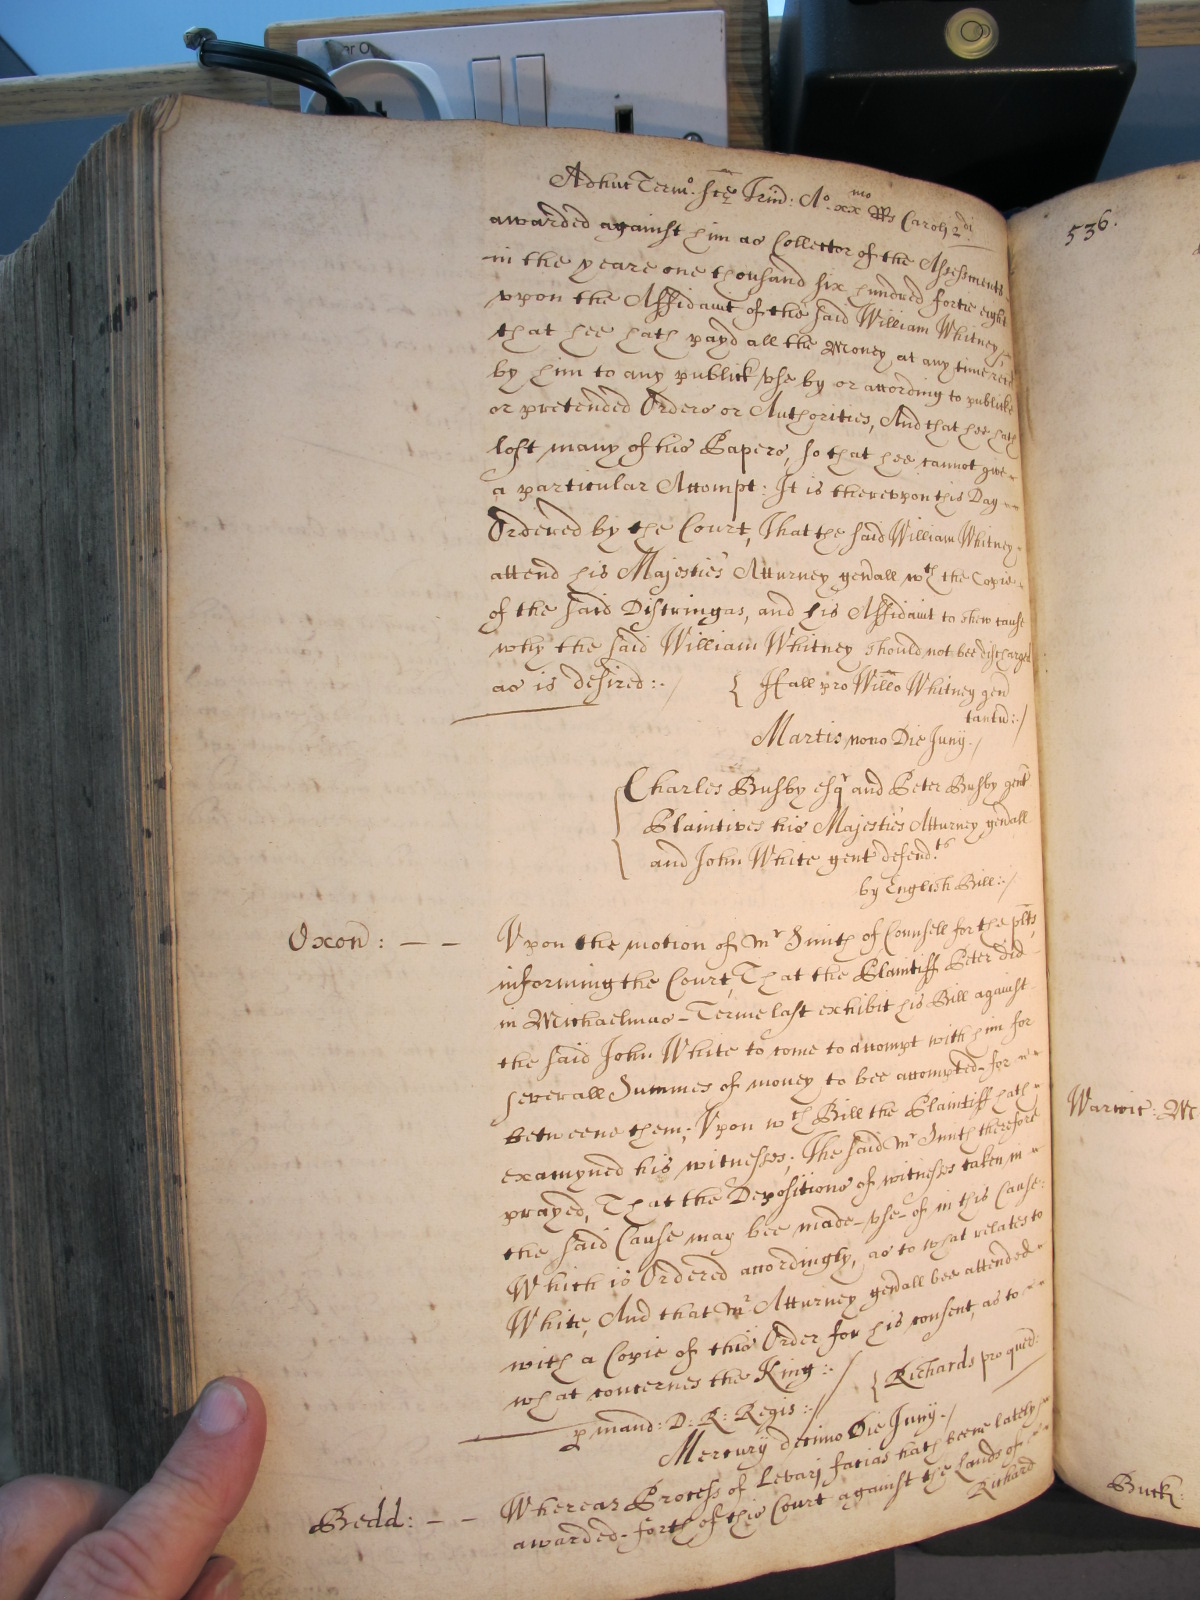 Adhuc Termo. Ste Trin̄d: Ao. xxmo Rs Caroli 2di
awarded against him as Collector of the Assessments
in the yeare one thousand six hundred fortie eight
vpon the Affidavit of the said William Whitney
that hee hath payd all the Money at any time recd
by him to any publick vse by or according to publicke
or pretended Orders or Authorities, And that hee hath
lost many of his Papers, so that hee cannot give
a particular Accompt: It is therevpon this Day
Ordered by the Court, That the said William Whitney
attend his Majesties Atturney gen̄all wth the Copie
of the said Distringas, and his Affidavit to shew cause
why the said William Whitney should not bee discharged
as is desired:./ { Hall pro Willo Whitney gen
tantū:./
Martis nono Die Junij./
{ Charles Busby esqr and Peter Busby gent
Plaintives his Majesties Atturney gen̄all
and John White gent defend:ts
by English Bill:./
Oxon̄: — — Vpon the motion of Mr Smith of Counsell for the plts,
informing the Court, That the Plaintiff Peter did
in Michaelmas-Terme last exhibit his Bill against
the said John White to come to accompt with him for
severall Summes of money to bee accompted-for
betweene them; Vpon wch Bill the Plaintiff hath
examyned his witnesses; The said Mr Smith therefore
prayed, That the Depositions of witnesses taken in
the said Cause may bee made-vse-of in this Cause:
Which is Ordered accordingly, as to what relates to
White, And that Mr Atturney gen̄all bee attended
with a Copie of this Order for his consent, as to
what concernes the King:./ { Richards pro quer:
p mand: D: R: Regis:./
Mercurij decimo Die Junij./
Bedd: — — Whereas Process of Levari facias hath beene lately
awarded-forth of this Court against the Lands of
Richard
536.
Warwic: M
Buck: